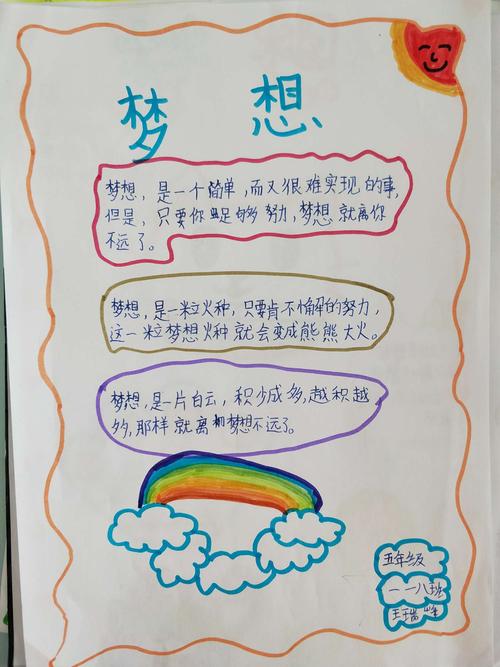 梦想
梦想，是一个简单，而又很难实现的事，
但是，只要你足够努力，梦想就离你
不远了。
梦想，是一粒火种，只要肯不懈的努力，
这一粒梦想火种就会变成熊熊大火。
梦想，是一片白云，积少成多，越积越
多，那样就离梦想不远了。
五年级
一一八班
王瑞